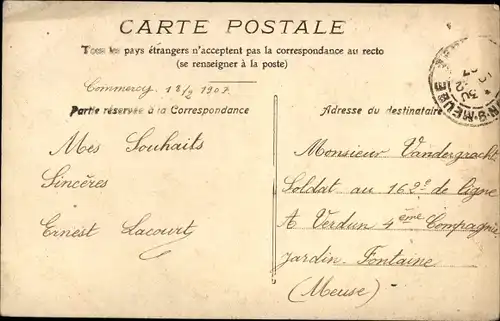 CARTE POSTALE
Tous les pays étrangers n'acceptent pas la correspondance au recto
(se renseigner à la poste)
Commercy 18/2 1907
Partie réservée à la Correspondance
Adresse du destinataire
Mes Souhaits
Sincères
Ernest Lacourt
Monsieur Vandergracht
Soldat au 162e de ligne
A Verdun 4ème Compagnie
Jardin-Fontaine
(Meuse)
MEUSE